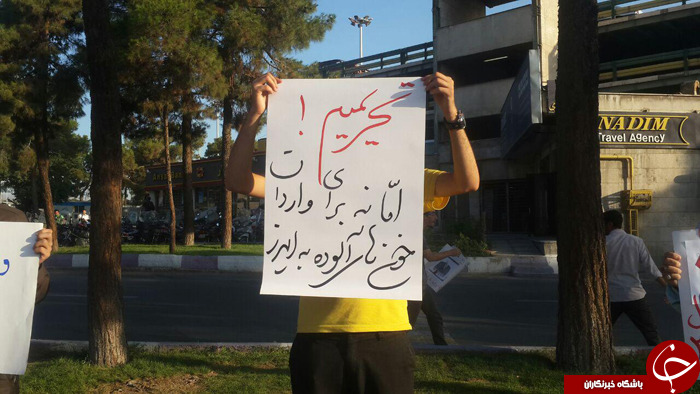 تحریمیم !
امّا نه برای واردات
خون های آلوده به ایدز
NADIM
Travel Agency
باشگاه خبرنگاران